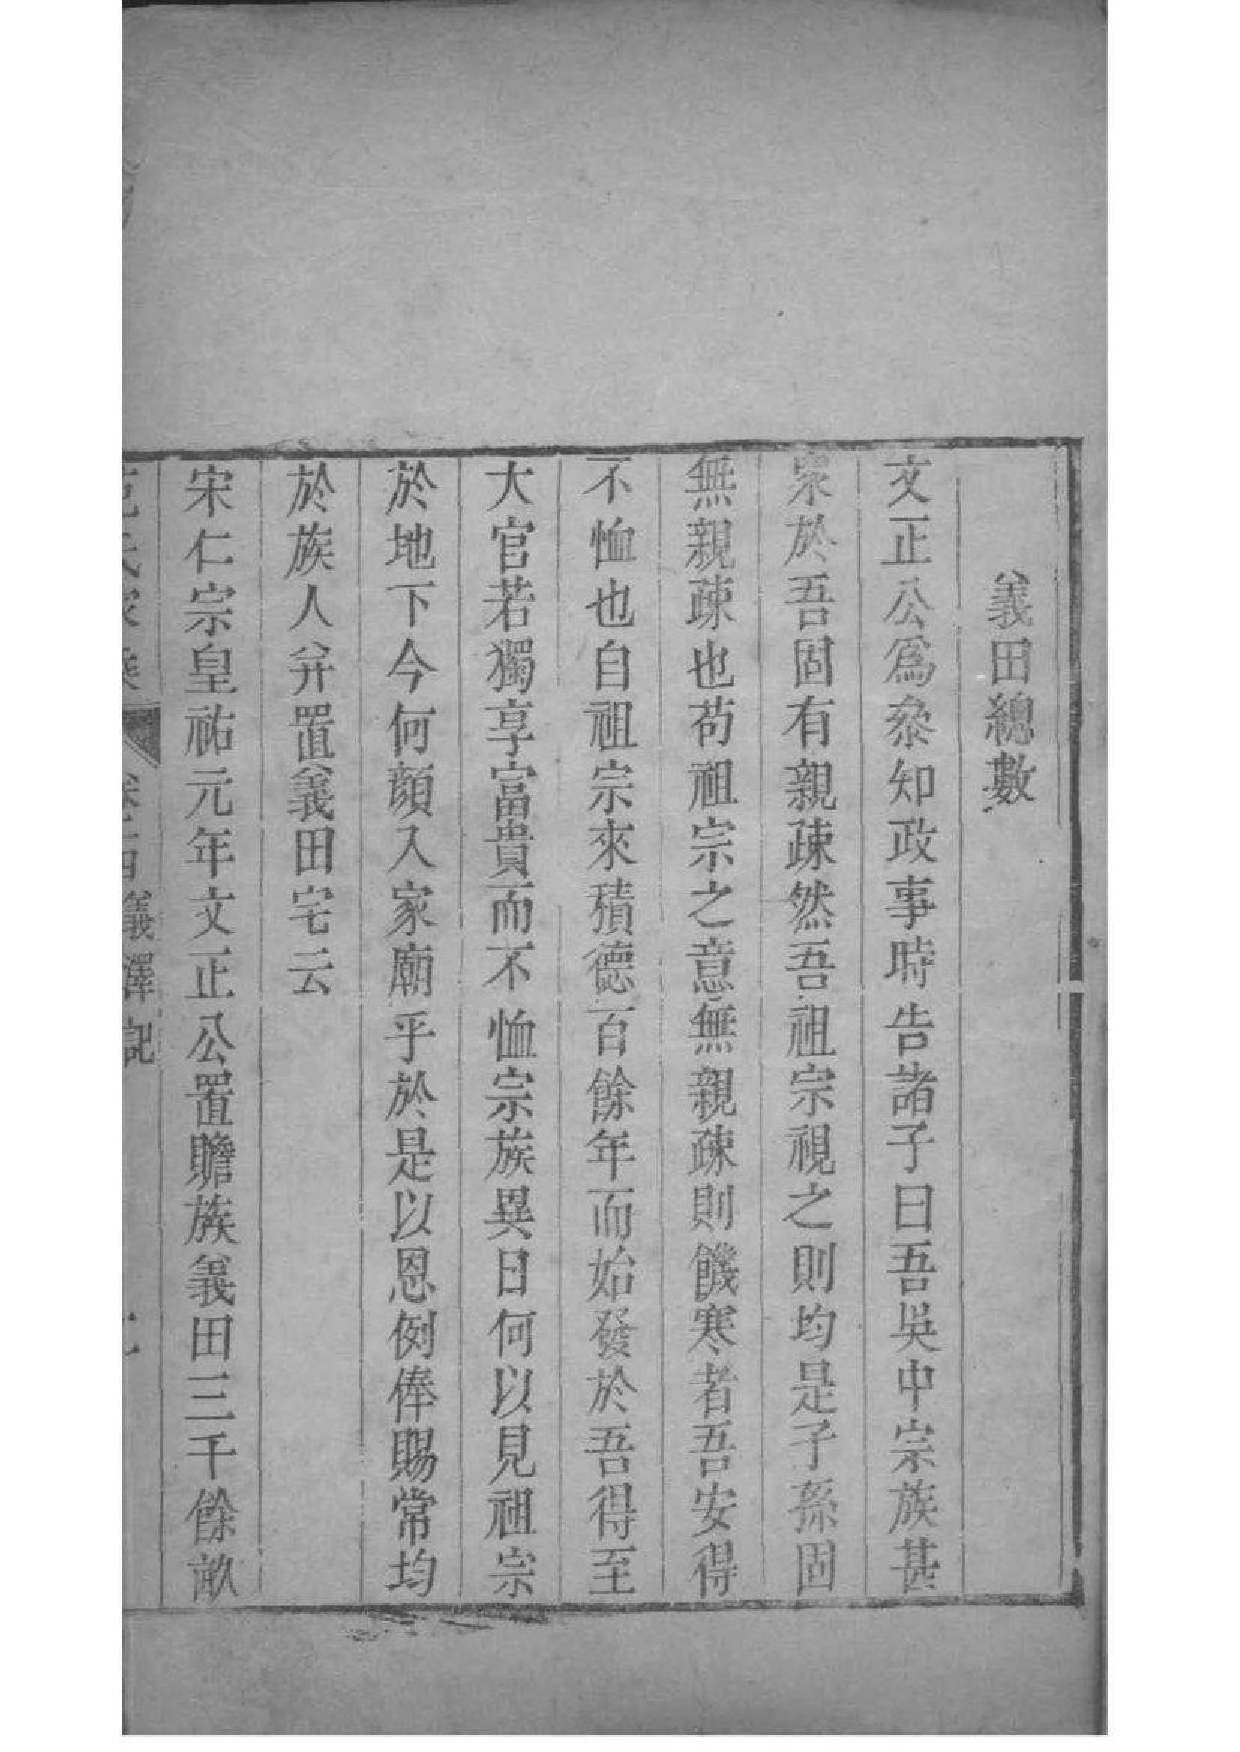 義田總數
文正公爲叅知政事時告諸子曰吾吳中宗族甚
衆於吾固有親疎然吾祖宗視之則均是子孫固
無親疎也苟祖宗之意無親疎則饑寒者吾安得
不恤也自祖宗來積德百餘年而始發於吾得至
大官若獨享富貴而不恤宗族異日何以見祖宗
於地下今何顔入家廟乎於是以恩例俸賜常均
於族人并置義田宅云
宋仁宗皇祐元年文正公置贍族義田三千餘畝
氏家乘 義澤記